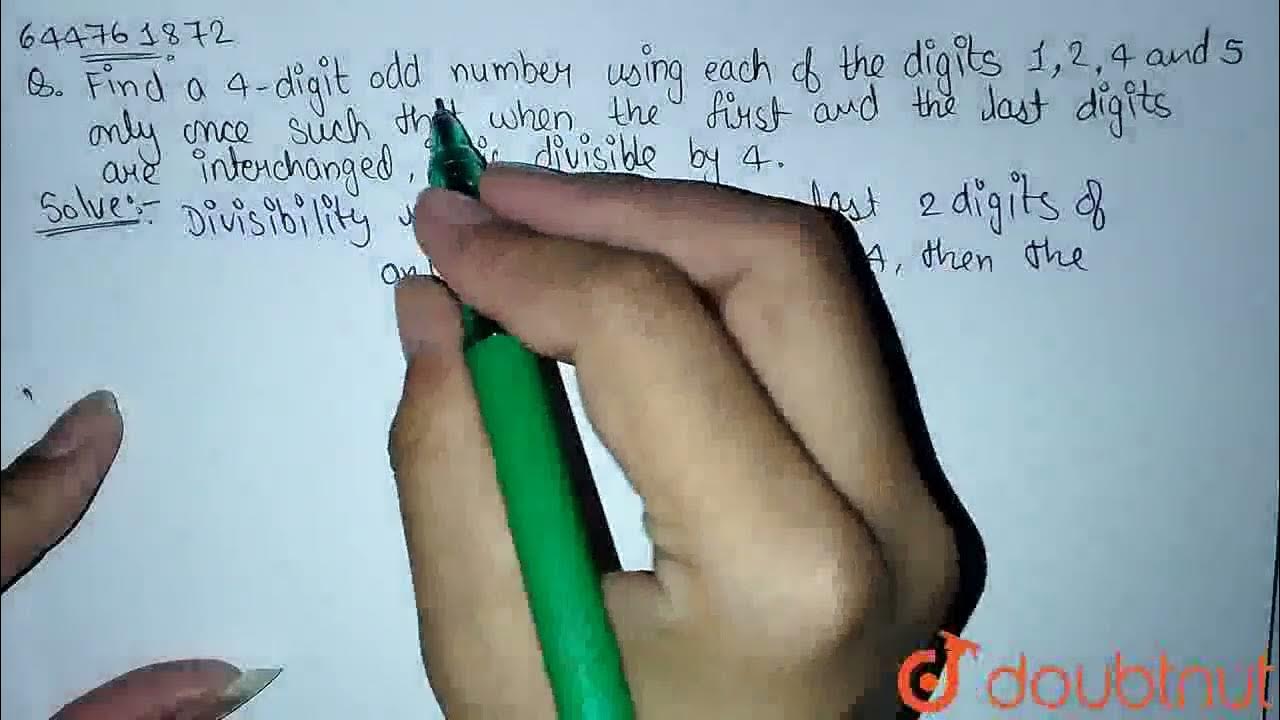 644761872
Q. Find a 4-digit odd number using each of the digits 1, 2, 4 and 5
only once such that when the first and the last digits
are interchanged, divisible by 4.
Solve:- Divisibility last 2 digits of
4, then the
doubtnut